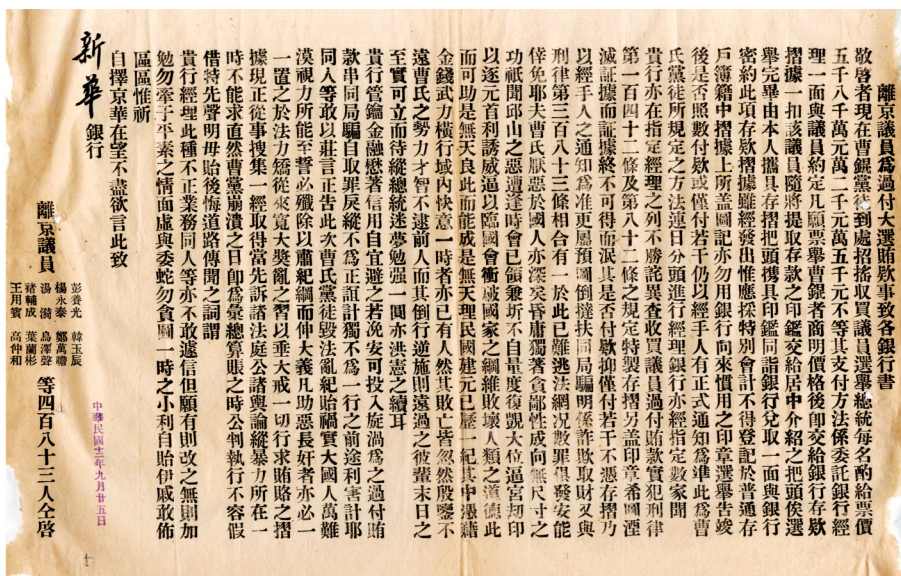 離京議員爲過付大選賄欵事致各銀行書
敬啓者現在曹錕黨徒到處招搖收買議員選舉總統每名酌給票價
五千八千萬元萬二千元萬五千元不等其支付方法係委託銀行經
理一面與議員約定凡願票舉曹錕者商明價格後卽交給銀行存欵
摺據一扣該議員隨將提取存款之印鑑交給居中介紹之把頭俟選
舉完畢由本人攜具存摺把頭攜具印鑑同詣銀行兌取一面與銀行
密約此項存欵摺據雖經發出惟應採特別會計不得登記於普通存
戶簿籍中摺據上所盖圖記亦勿用經理銀行向來慣用之印章選舉告竣
後是否照數付欵或僅付若干仍以經手人有正式通知爲準此爲曹
氏黨徒所規定之方法連日分頭進行經理銀行亦經指定數家聞
貴行亦在指定經理之列不勝詫異查收買議員過付賄款實犯刑律
第一百四十二條及第八十二條之規定特製存摺另盖印章希圖湮
滅証據而証據終不可得而泯其是否付欵抑僅付若干不憑存摺乃
以經手人之通知爲准更屬預圖倒撻扶同局騙明係詐欺取財又與
刑律第三百八十三條相合有一於此已難逃法網况數罪俱發安能
倖免耶夫曹氏厭惡於國人亦深矣昏庸獨著貪鄙性成向無尺寸之
功祇聞邱山之惡遭逢時會已領兼圻不自量度復覬大位逼宮刼印
以逐元首利誘威逼以臨國會衝破國家之綱維敗壞人類之道德此
而可助是無天良此而能成是無天理民國建元已歷一紀其中憑藉
金錢武力橫行域內快意一時者亦已有人然其敗亡皆忽然殷鑒不
遠曹氏之勢力才智不逮前人而其倒行逆施則遠過之彼輩末日之
至實可立而待縱總統迷夢勉强一圓亦洪憲之續耳
貴行管鑰金融懋著信用自宜避之若浼安可投入旋渦爲之過付賄
款串同局騙自取罪戾縱不爲正誼計獨不爲一行之前途利害計耶
同人等敢以莊言正告此次曹氏黨徒毀法亂紀貽禍實大國人萬難
漠視力所能至誓必殲除以肅紀綱而伸大義凡助惡長奸者亦必一
一置之於法力矯從來寬大獎亂之習以垂大戒一切行求賄賂之摺
據現正從事搜集一經取得當先訴諸法庭公諸輿論縱暴力所在一
時不能求直然曹黨崩潰之日卽爲彙總算賬之時公判執行不容假
借特先聲明毋貽後悔道路傳聞之詞謂
貴行經理此種不正業務同人等亦不敢遽信但願有則改之無則加
勉勿牽于平素之情面虛與委蛇勿貪圖一時之小利自貽伊戚敢佈
區區惟祈
自擇京華在望不盡欲言此致
新華銀行
離京議員
彭養光 韓玉辰
楊永泰 鄭萬瞻
湯漪 烏澤聲
褚輔成 葉蘭彬
王用賓 高仲和
等四百八十三人仝啓
中華民國十二年九月廿五日